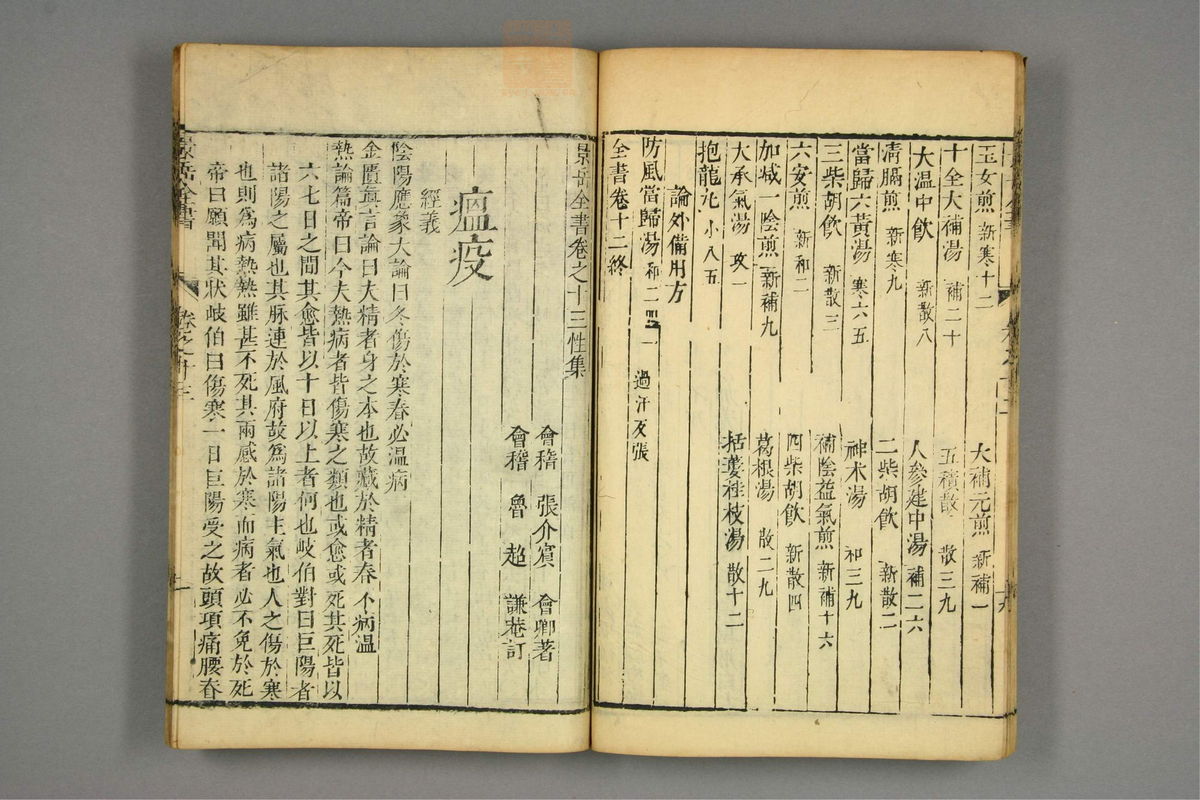 玉女煎 新寒十二 大補元煎 新補一
十全大補湯 補二十 五積散 散三九
大温中飲 新散八 人參建中湯 補二六
清膈煎 新寒九 二柴胡飲 新散二
當歸六黃湯 寒六五 神术湯 和三九
三柴胡飲 新散三 補陰益氣煎 新補十六
六安煎 新和二 四柴胡飲 新散四
加減一陰煎 新補九 葛根湯 散二九
大承氣湯 攻一 括蔞桂枝湯 散十二
抱龍丸 小八五
論外備用方
防風當歸湯 和二 一 過汗反張
全書卷十二終
景岳全書卷之十三性集
會稽 張介賓 會卿著
會稽 魯超 謙菴訂
瘟疫
經義
陰陽應象大論曰冬傷於寒春必温病
金匱眞言論曰夫精者身之本也故藏於精者春不病温
熱論篇帝曰今夫熱病者皆傷寒之類也或愈或死其死皆以
六七日之間其愈皆以十日以上者何也岐伯對曰巨陽者
諸陽之屬也其脉連於風府故爲諸陽主氣也人之傷於寒
也則爲病熱熱雖甚不死其兩感於寒而病者必不免於死
帝曰願聞其狀岐伯曰傷寒一日巨陽受之故頭項痛腰脊
景岳全書 卷之十三 一